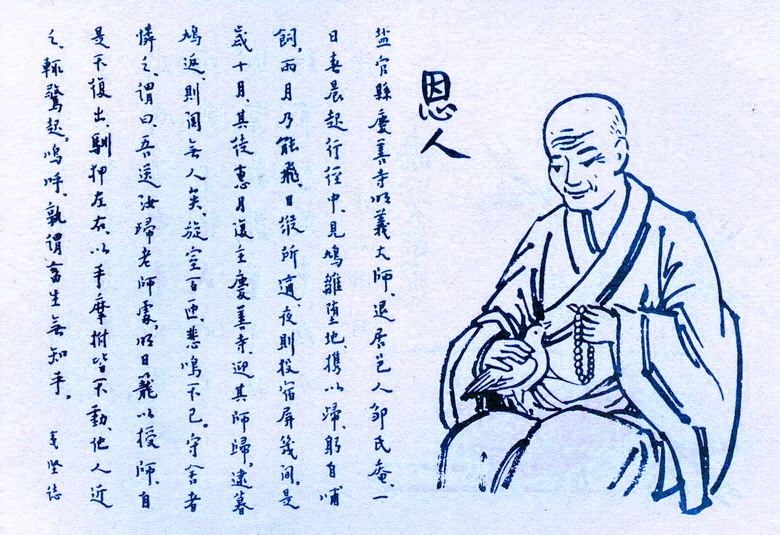 恩人
盐官縣慶善寺明義大師、退居邑人鄒氏庵、一
日春晨起行徑中、見鳩雛墮地、携以歸、躬自哺
飼。兩月乃能飛。日縱所適、夜則投宿屏幾间。是
歲十月、其徒惠月復主慶善寺、迎其師歸。逮暮
鳩返、則闃無人矣。旋室百匝、悲鳴不已。守舍者
憐之、谓曰、吾送汝歸老師處。明日籠以授師、自
是不復出、馴狎左右、以手摩拊皆不動、他人近
之、輒驚起。嗚呼、孰谓畜生無知乎。